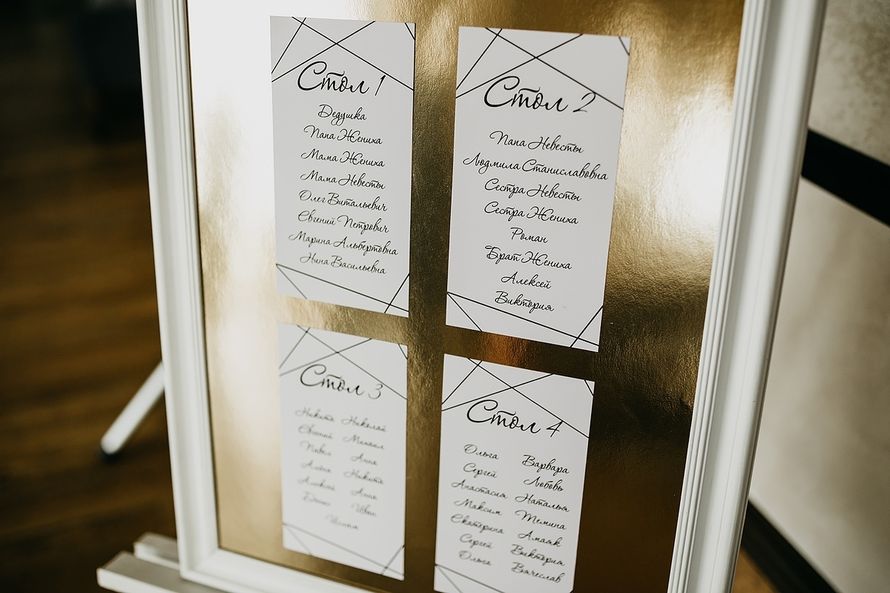 Стол 1
Дедушка
Папа Жениха
Мама Жениха
Мама Невесты
Олег Витальевич
Евгений Петрович
Марина Альбертовна
Нина Васильевна
Стол 2
Папа Невесты
Людмила Станиславовна
Сестра Невесты
Сестра Жениха
Роман
Брат Жениха
Алексей
Виктория
Стол 3
Никита Николай
Евгений Михаил
Павел Анна
Алёна Никита
Алексей Анна
Иван
Стол 4
Ольга Варвара
Сергей Любовь
Анастасия Наталья
Максим Темина
Екатерина Амаяк
Сергей Виктория
Ольга Вячеслав